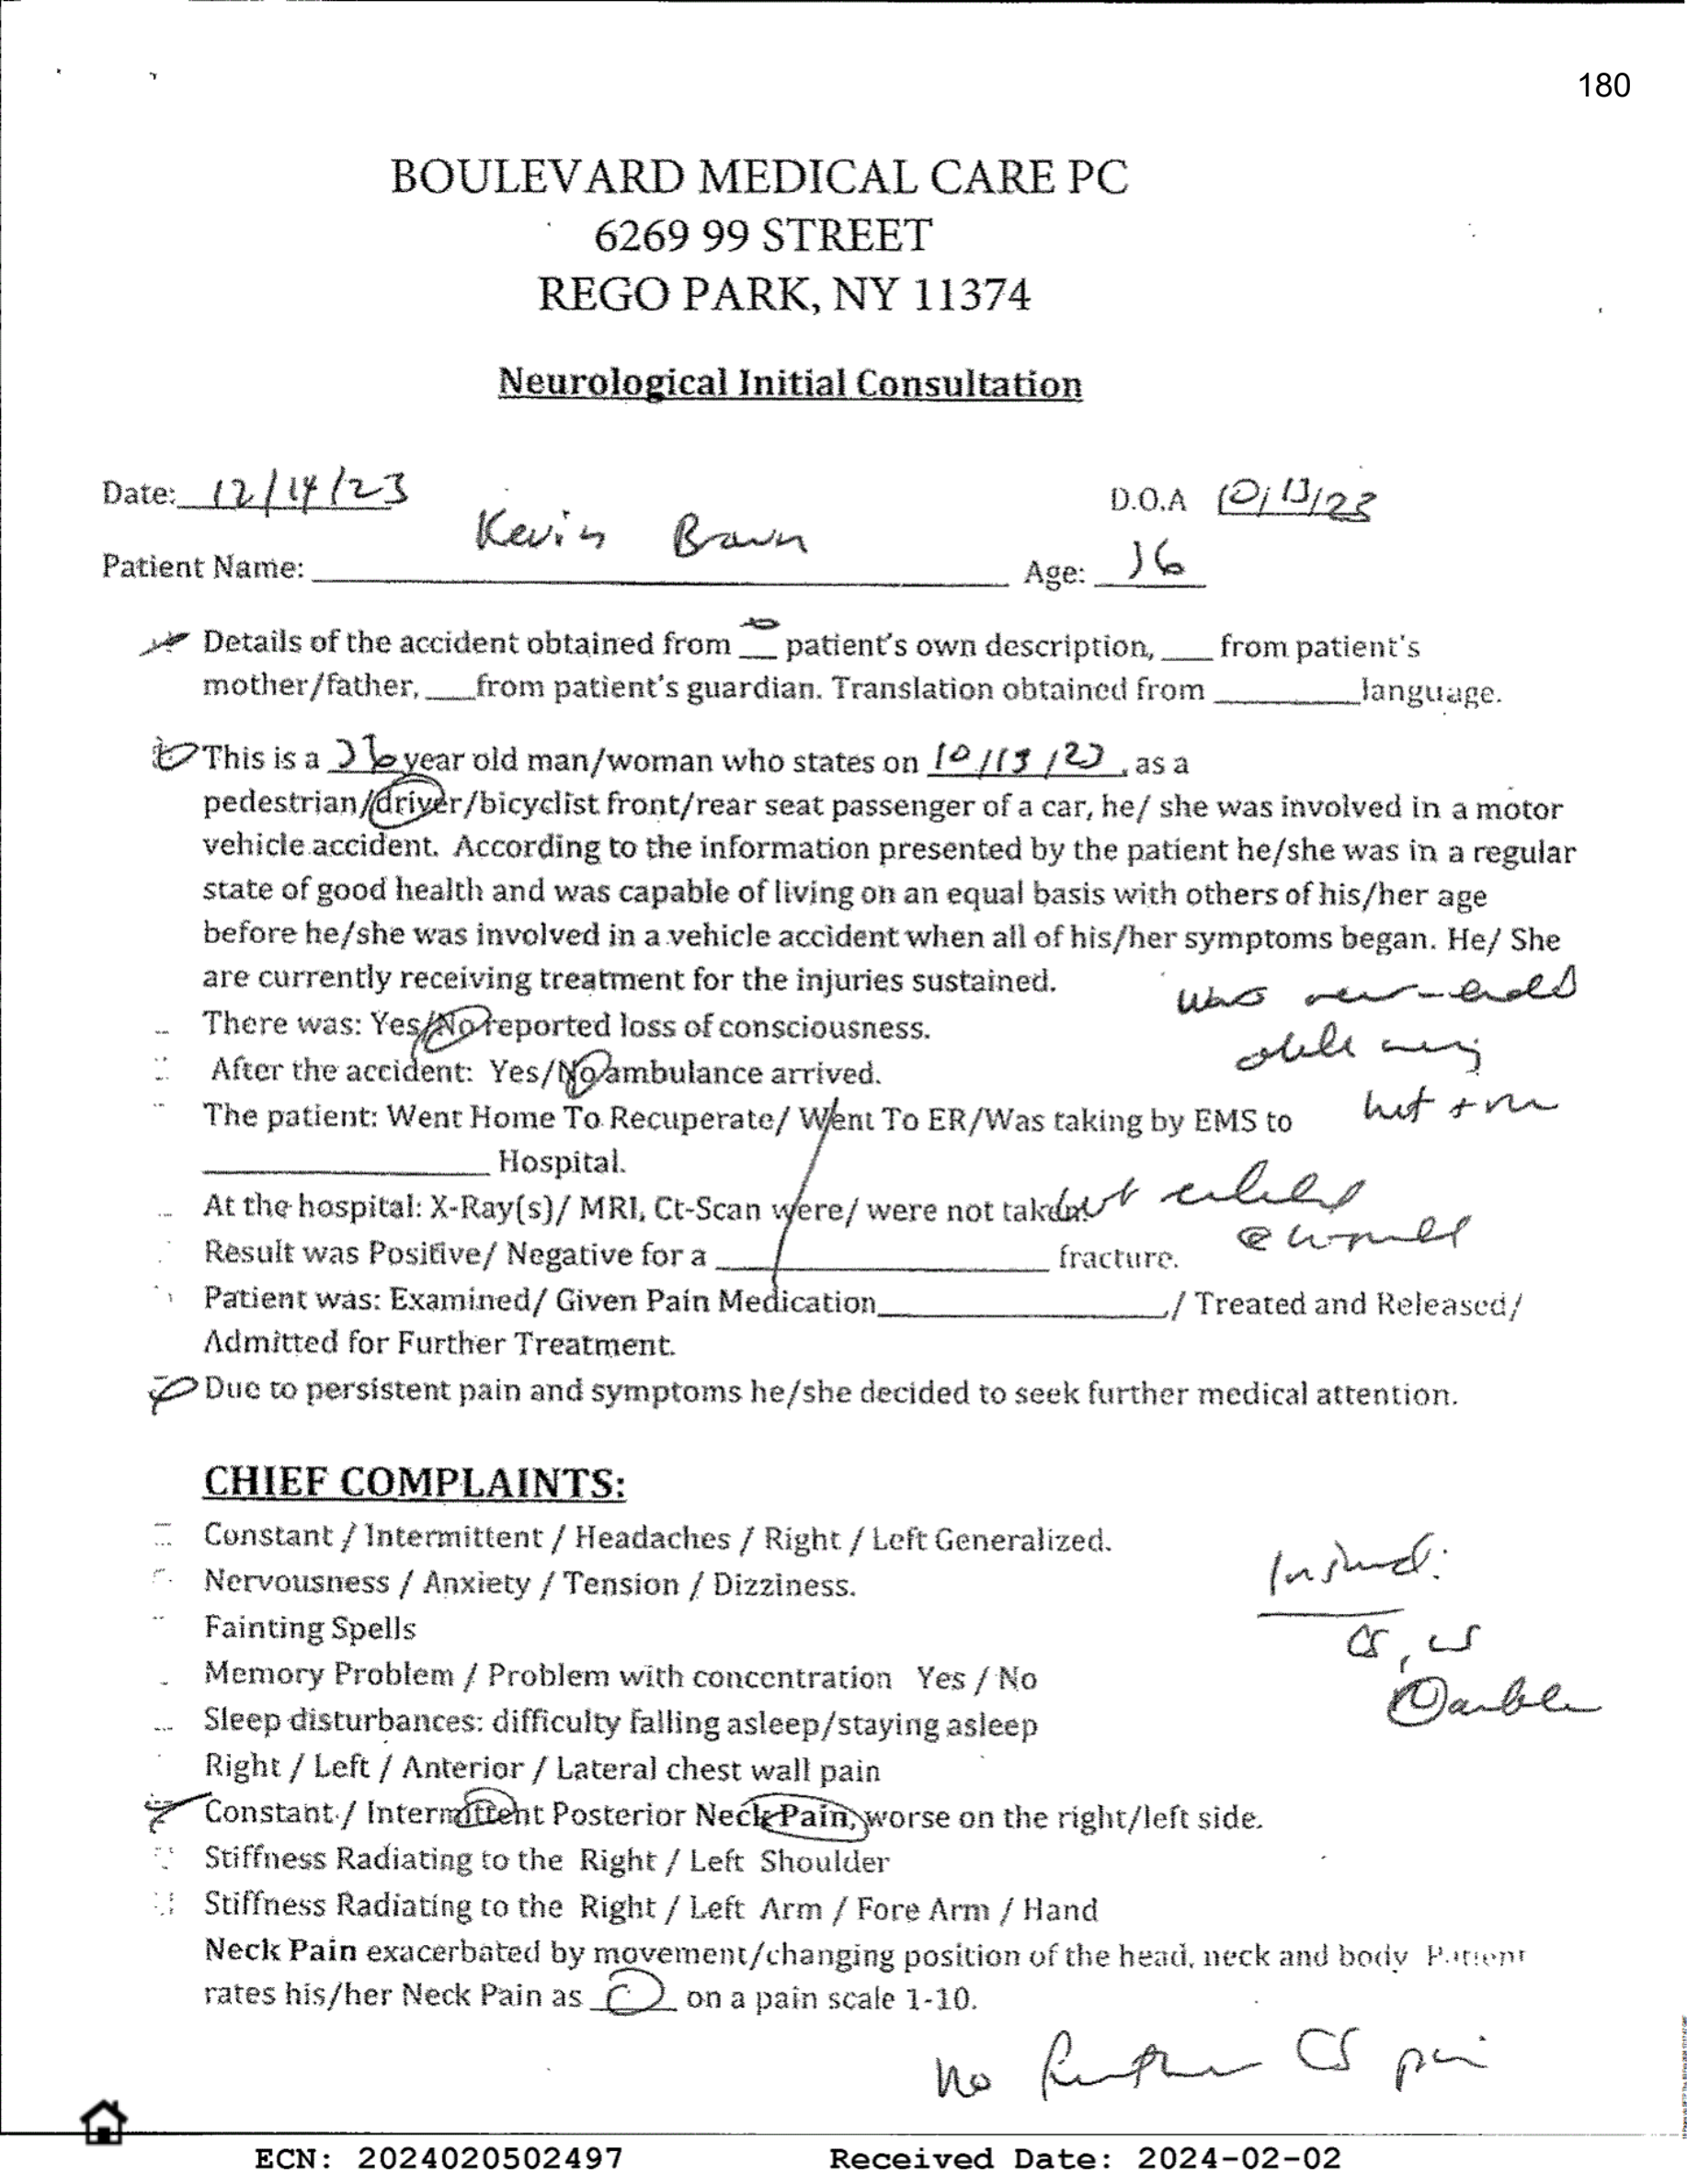 180
BOULEVARD MEDICAL CARE PC
6269 99 STREET
REGO PARK, NY 11374
Neurological Initial Consultation
Date: 12/14/23 D.O.A 10/13/23
Kevin
Patient Name: Age:
Details of the accident obtained from __ patient's own description, ___ from patient's
mother/father, ___from patient's guardian. Translation obtained from ________language.
This is a year old man/woman who states on 10/13/23, as a
pedestrian/driver/bicyclist front/rear seat passenger of a car, he/ she was involved in a motor
vehicle accident. According to the information presented by the patient he/she was in a regular
state of good health and was capable of living on an equal basis with others of his/her age
before he/she was involved in a vehicle accident when all of his/her symptoms began. He/ She
are currently receiving treatment for the injuries sustained.
was rear-ended
There was: Yes/No reported loss of consciousness.
After the accident: Yes/No ambulance arrived.
The patient: Went Home To Recuperate/ Went To ER/Was taking by EMS to
________________ Hospital.
At the hospital: X-Ray(s)/ MRI, Ct-Scan were/ were not taken.
Result was Positive/ Negative for a ___________________ fracture.
Patient was: Examined/ Given Pain Medication________________/ Treated and Released/
Admitted for Further Treatment.
Due to persistent pain and symptoms he/she decided to seek further medical attention.
CHIEF COMPLAINTS:
Constant / Intermittent / Headaches / Right / Left Generalized.
Injured:
Nervousness / Anxiety / Tension / Dizziness.
Fainting Spells
CS, LS
Memory Problem / Problem with concentration Yes / No
Sleep disturbances: difficulty falling asleep/staying asleep
Right / Left / Anterior / Lateral chest wall pain
Constant / Intermittent Posterior Neck Pain, worse on the right/left side.
Stiffness Radiating to the Right / Left Shoulder
Stiffness Radiating to the Right / Left Arm / Fore Arm / Hand
Neck Pain exacerbated by movement/changing position of the head, neck and body Patient
rates his/her Neck Pain as on a pain scale 1-10.
No further CS pain
ECN: 2024020502497 Received Date: 2024-02-02